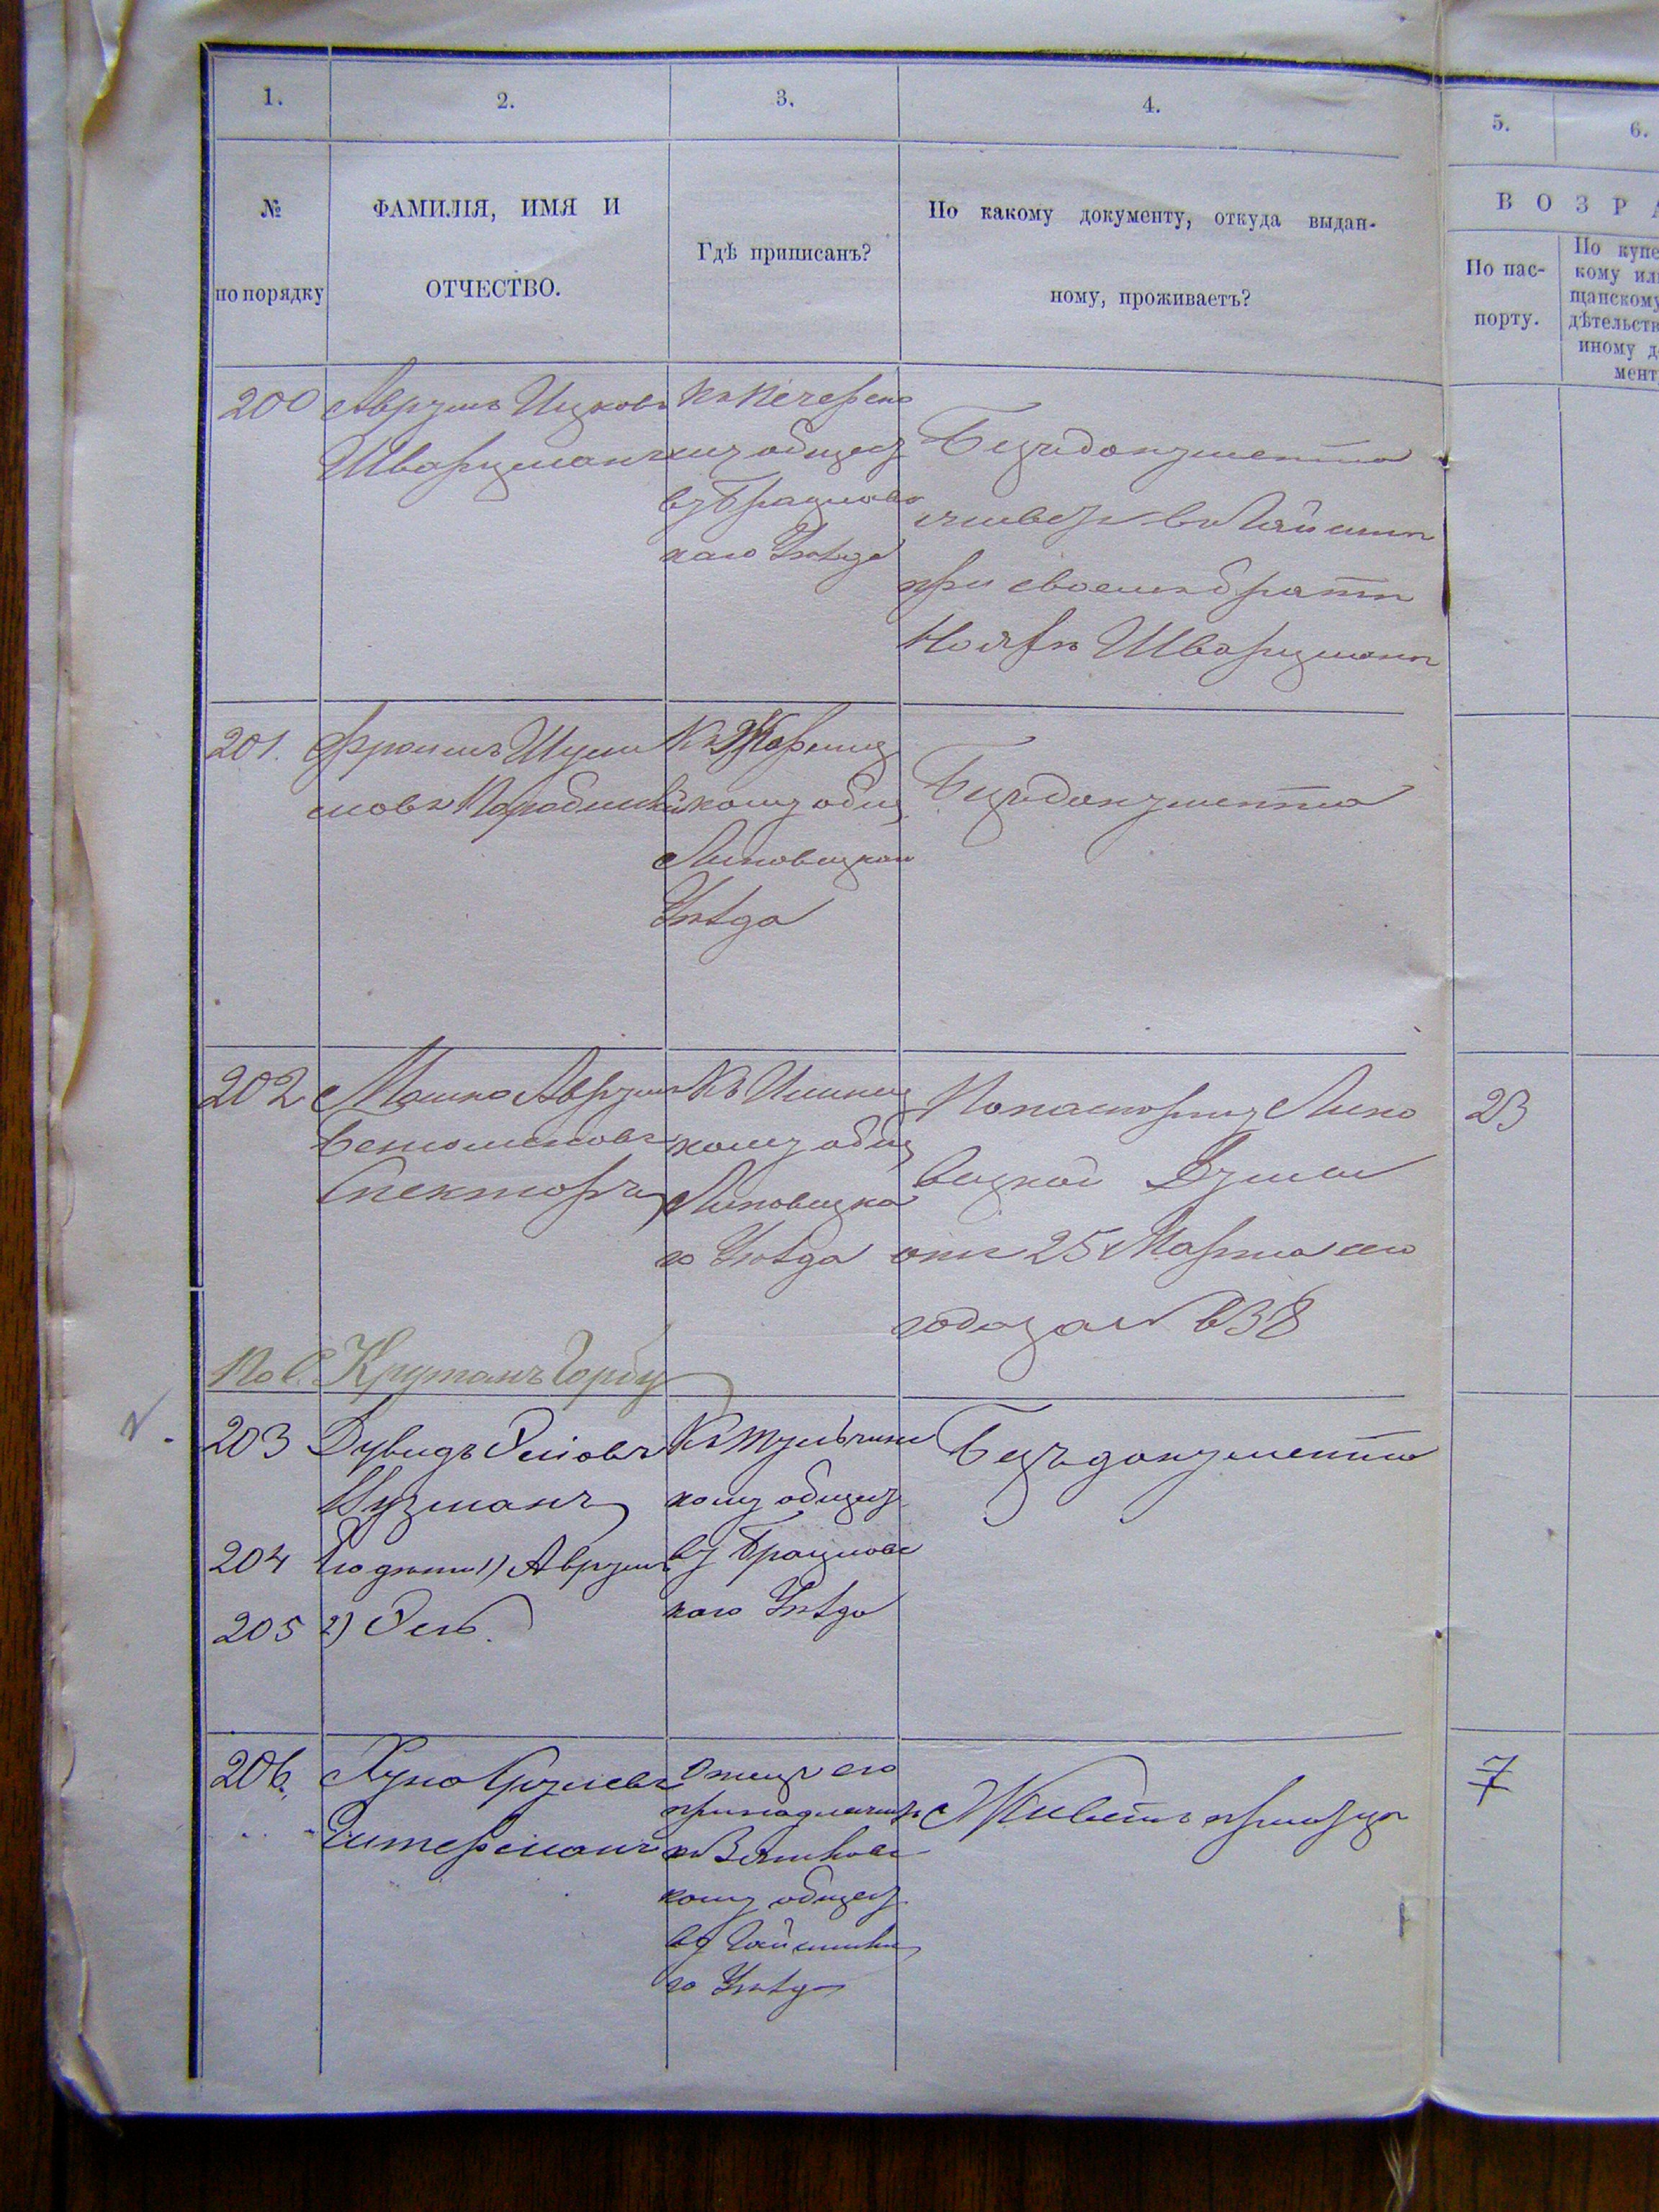 1.
2.
3.
4.
5.
6.
№
по порядку
ФАМИЛІЯ, ИМЯ И
ОТЧЕСТВО.
Гдѣ приписанъ?
По какому документу, откуда выдан-
ному, проживаетъ?
ВОЗРА
По пас-
порту.
По купе
кому ил
щанскому
дѣтельств
иному д
мент
200
Аврумъ Ицковъ
Шварцманъ
Къ Печерско
му общест
ву Брацлавс
каго Уѣзда
Безъ документа
живетъ въ Гайсинѣ
при своемъ братѣ
Шварцманѣ
201.
Фроимъ Шули
мовъ
Къ
скому общ
Липовецкаго
Уѣзда
Безъ документа
202
Мошко Аврумъ
Беньюминовъ
Спекторъ
Къ Илинец
кому общ
Липовецка
го Уѣзда
По паспорту Липо
вецкой Думы
отъ 25 Марта сего
года за № 638
23
По с. Крутогорбу
203
Дувидъ Осіовъ
Нузманъ
Къ Тульчинс
кому общест
ву Брацлавс
каго Уѣзда
Безъ документа
204
Его дѣти 1) Аврумъ
205
2) Осъ.
206.
Хуно Срулевъ
Читерманъ
Отецъ его
принадлежитъ
къ Зятковс
кому общест
ву Гайсинска
го Уѣзда
Живетъ при отцѣ
7